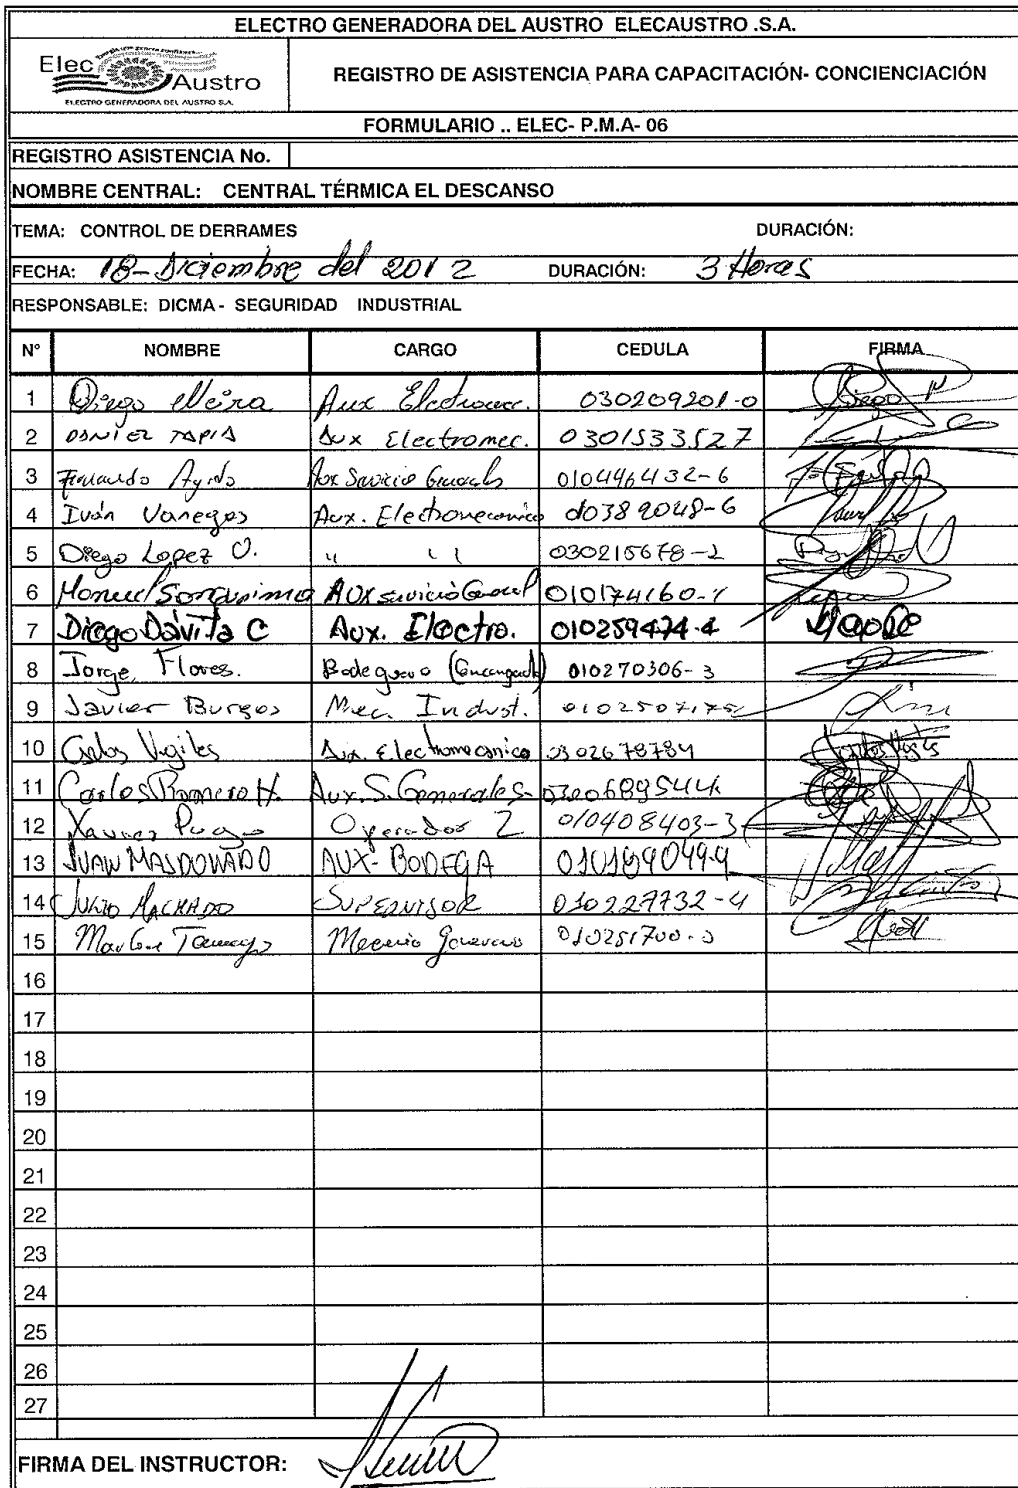 ELECTRO GENERADORA DEL AUSTRO ELECAUSTRO .S.A.
Elec Austro
ELECTRO GENERADORA DEL AUSTRO S.A.
REGISTRO DE ASISTENCIA PARA CAPACITACIÓN- CONCIENCIACIÓN
FORMULARIO .. ELEC- P.M.A- 06
REGISTRO ASISTENCIA No.
NOMBRE CENTRAL: CENTRAL TÉRMICA EL DESCANSO
TEMA: CONTROL DE DERRAMES DURACIÓN:
FECHA: 18-Diciembre del 2012 DURACIÓN: 3 Horas
RESPONSABLE: DICMA - SEGURIDAD INDUSTRIAL
N° NOMBRE CARGO CEDULA FIRMA
1 Diego Neira Aux Electromec. 030209201-0 Diego
2 DANIEL TAPIA Aux Electromec. 0301533527
3 Fernando Aux Servicio Generales 010446432-6
4 Iván Vanegas Aux. Electromecanico
5 Diego Lopez O. " " 030215678-2
6 Manuel AUX servicio General
7 Diego Dávila C Aux. Electro. 010259474-4
8 Jorge Flores. Bodeguero 010270306-3
9 Javier Burgos Mec. Indust.
10 Carlos Vigiles Aux. Electromecanico 0302678784
11 Carlos Romero H. Aux. S. Generales
12 Xavier Operador 2 010408403-3
13 JUAN MALDONADO AUX-BODEGA
14 JULIO MACHADO SUPERVISOR 010227732-4
15
16
17
18
19
20
21
22
23
24
25
26
27
FIRMA DEL INSTRUCTOR: